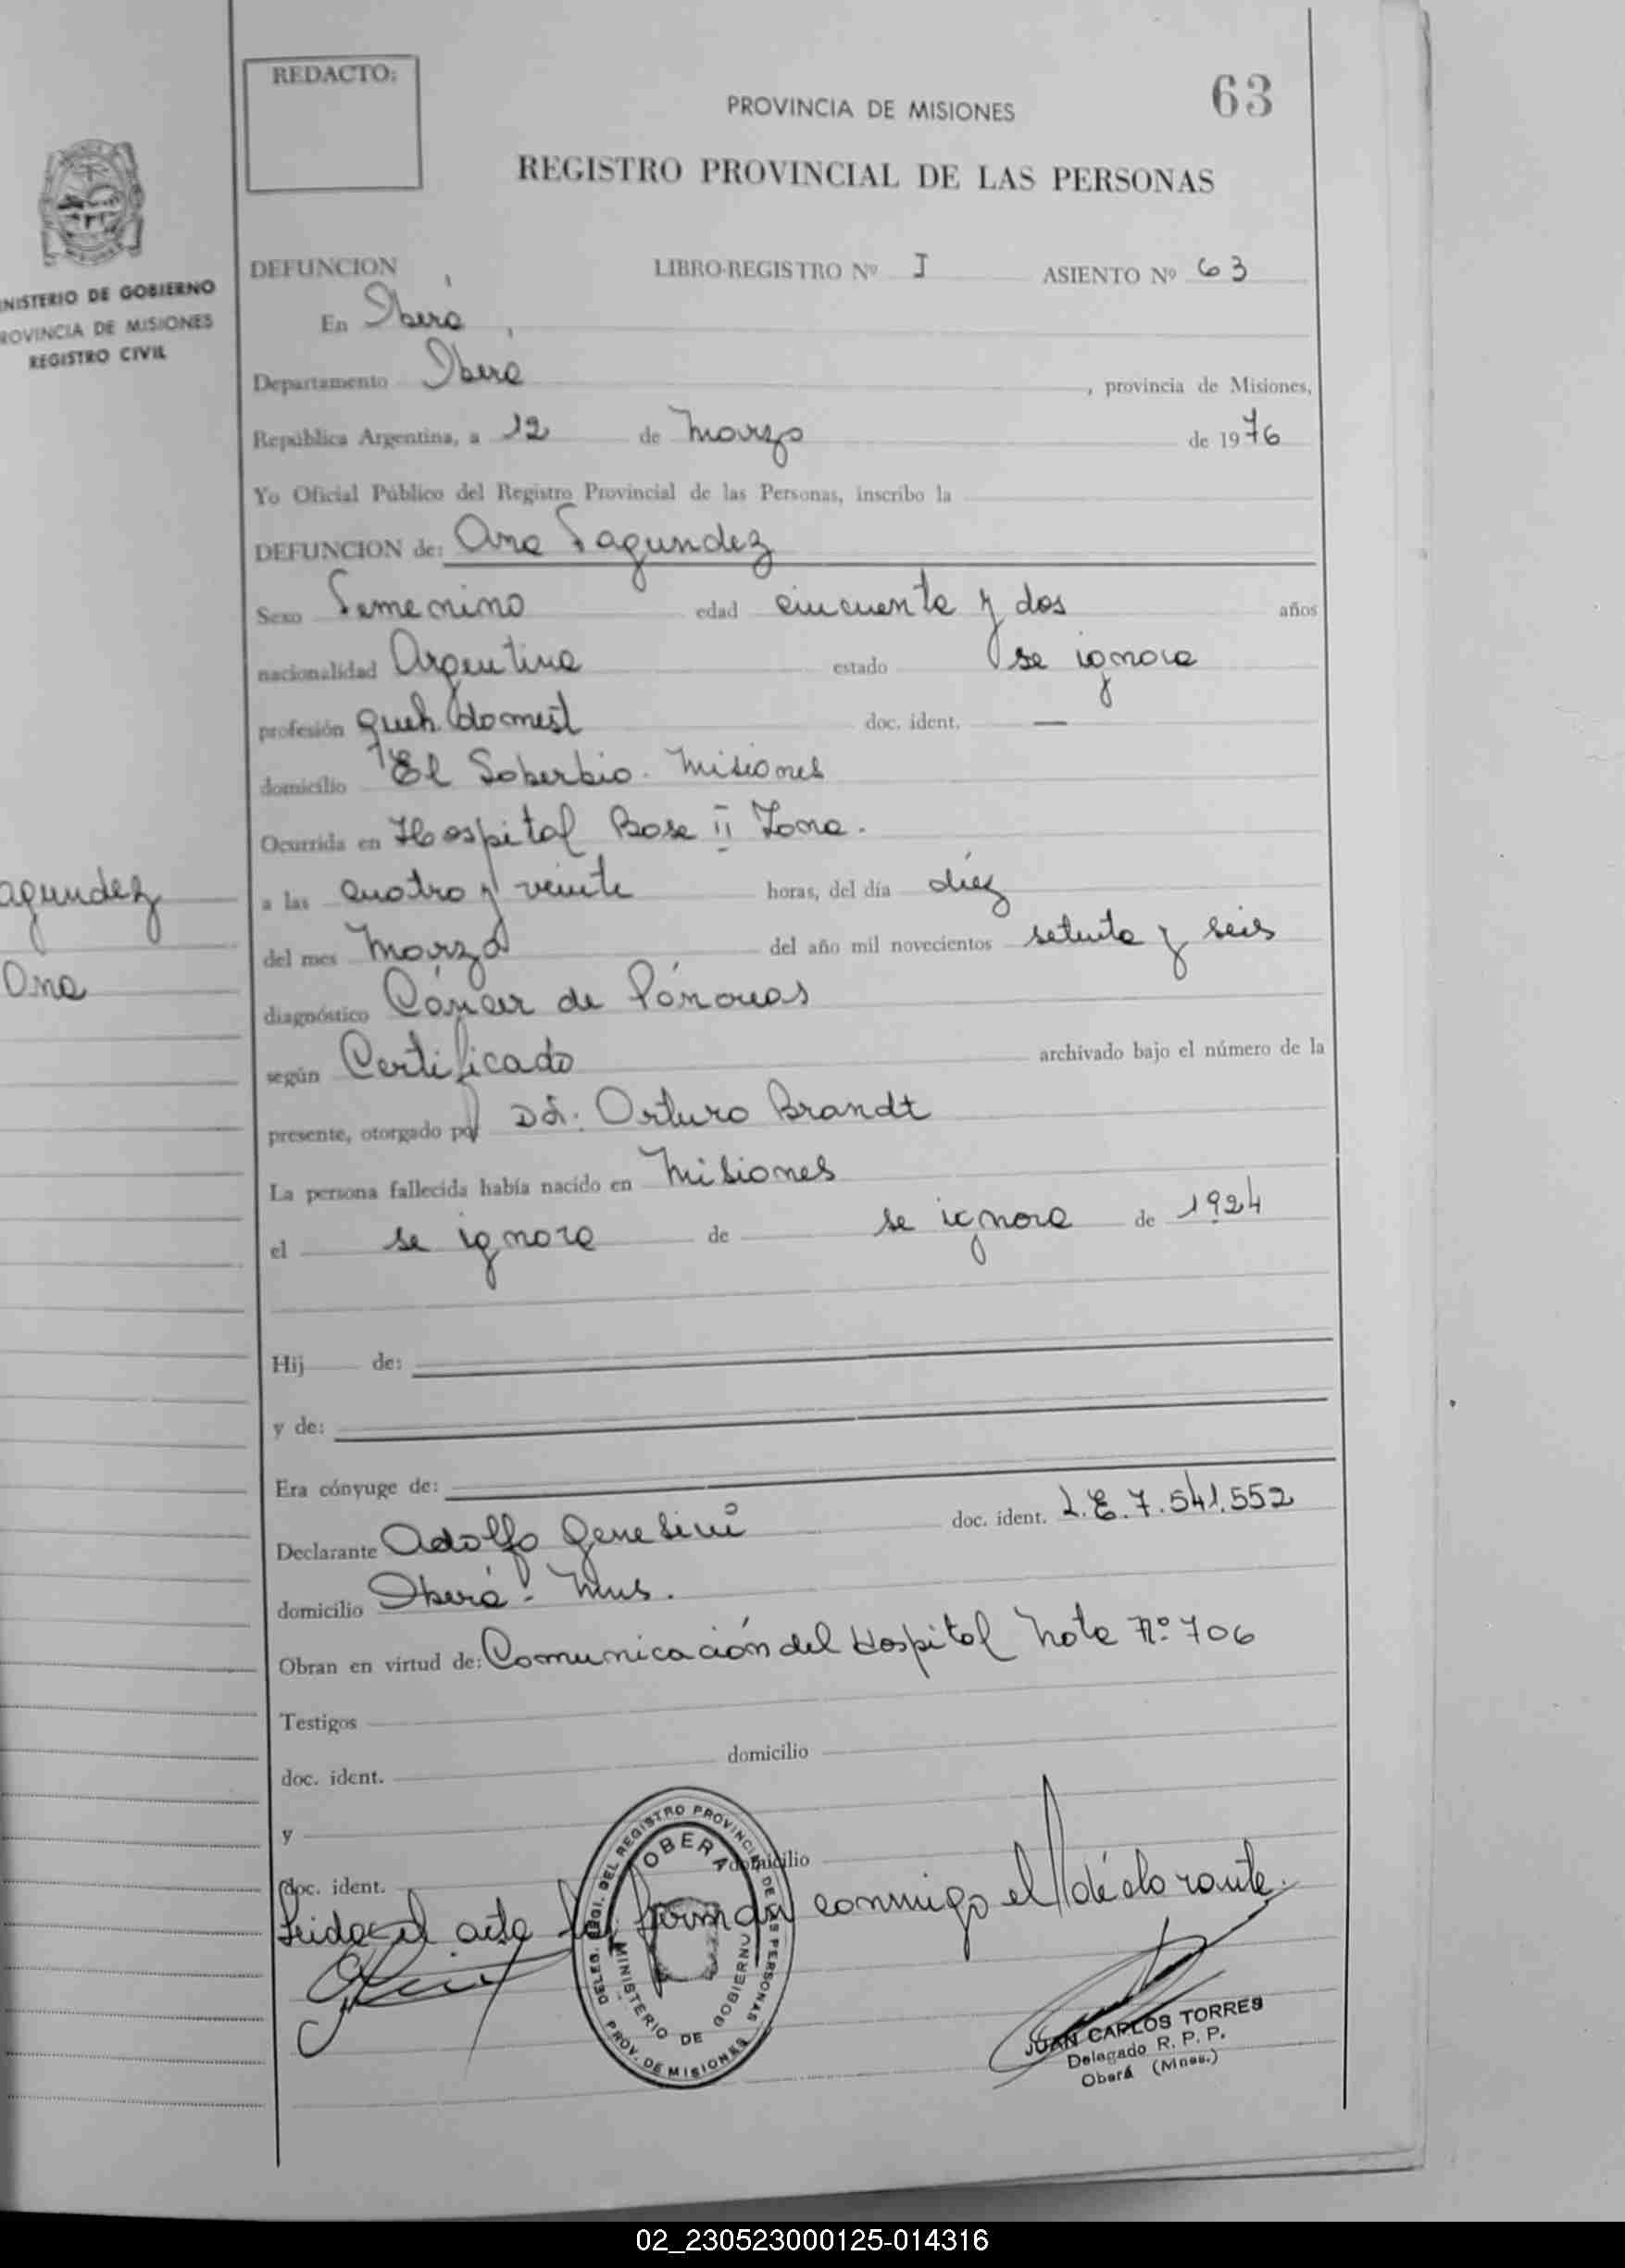 REDACTO:
63
PROVINCIA DE MISIONES
REGISTRO PROVINCIAL DE LAS PERSONAS
MINISTERIO DE GOBIERNO
PROVINCIA DE MISIONES
REGISTRO CIVIL
DEFUNCION LIBRO-REGISTRO Nº I ASIENTO Nº 63
En Oberá,
Departamento Oberá, provincia de Misiones,
República Argentina, a 12 de Marzo de 1976
Yo Oficial Público del Registro Provincial de las Personas, inscribo la
DEFUNCION de: Ana Fagundez
Sexo Femenino edad cincuenta y dos años
nacionalidad Argentina estado se ignora
profesión queh. domest doc. ident. —
domicilio El Soberbio. Misiones
Ocurrida en Hospital Base II Zona.
agundez
a las cuatro y veinte horas, del día diéz
del mes Marzo del año mil novecientos setenta y seis
Ana
diagnóstico Cáncer de Páncreas
según Certificado archivado bajo el número de la
presente, otorgado por Dr. Arturo Brandt
La persona fallecida había nacido en Misiones
el se ignora de se ignora de 1924
Hij de:
y de:
Era cónyuge de:
Declarante Adolfo Genesini doc. ident. L.E. 7.541.552
domicilio Oberá - Mns.
Obran en virtud de: Comunicación del Hospital Nota Nº 706
Testigos
doc. ident. domicilio
y
doc. ident. domicilio
Leida el acta la firman conmigo el declarante.
DELEG. DEL REGISTRO PROVINCIAL DE LAS PERSONAS
OBERA
MINISTERIO DE GOBIERNO
PROV. DE MISIONES
JUAN CARLOS TORRES
Delegado R. P. P.
Oberá (Mnes.)
02_230523000125-014316